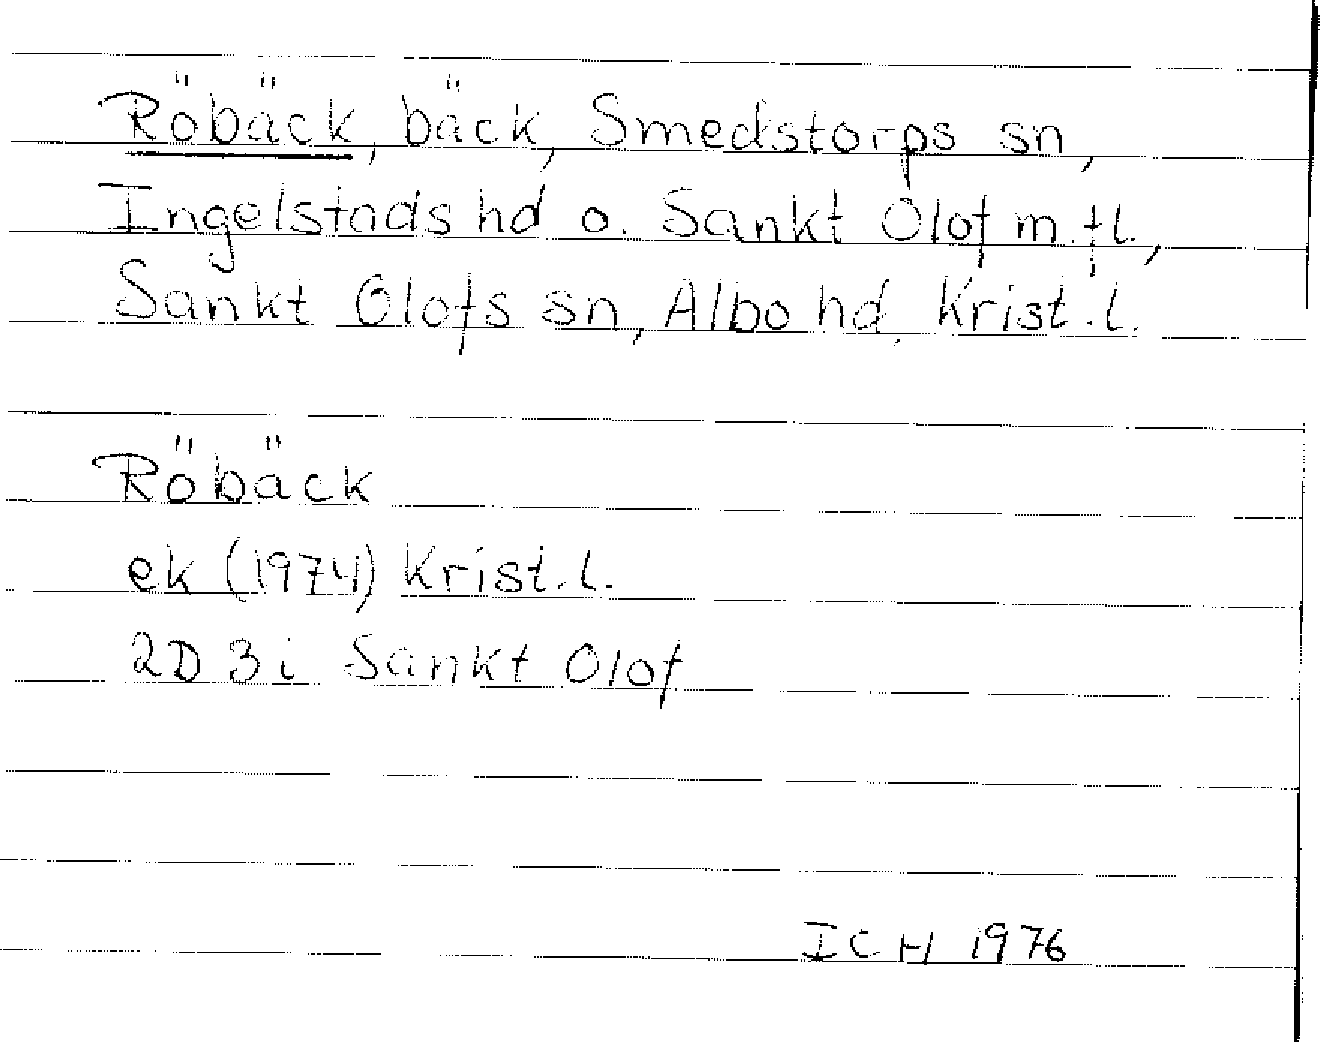 Röbäck, bäck, Smedstorps sn,
Ingelstads hd o. Sankt Olof m.fl.,
Sankt Olofs sn, Albo hd, Krist.l.
Röbäck
ek (1974) Krist.l.
2D 3i Sankt Olof
ICH 1976